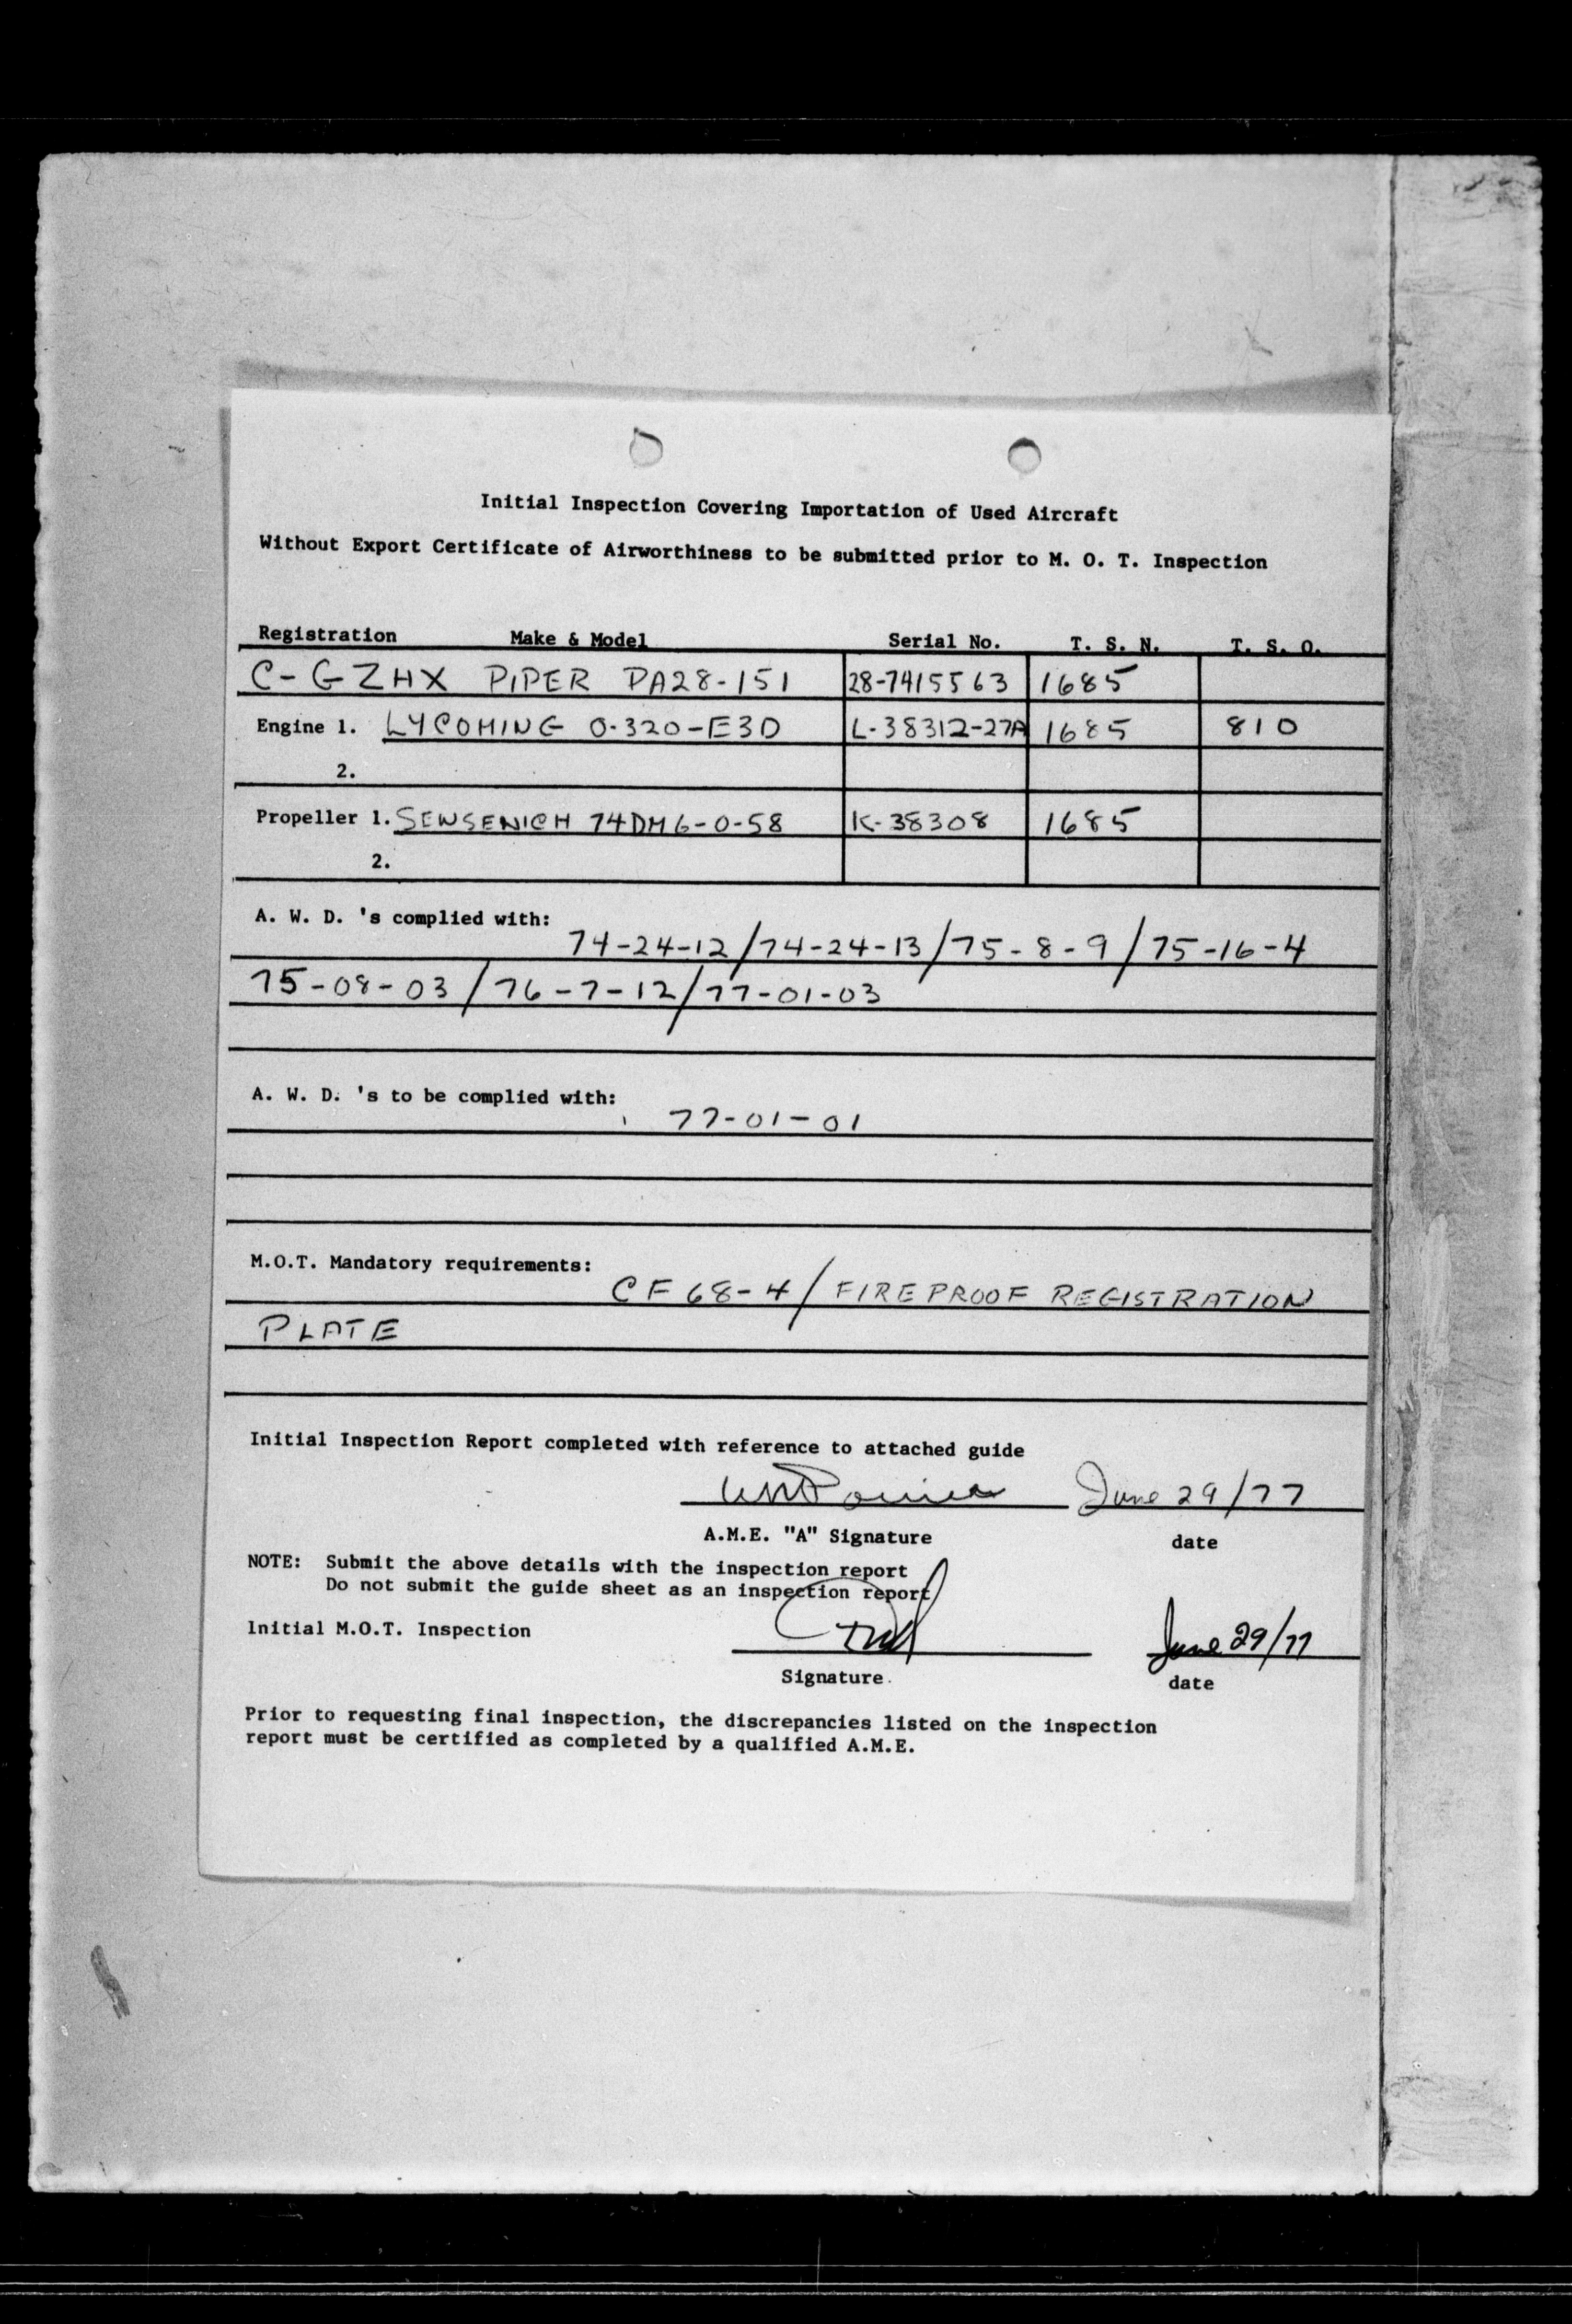 Initial Inspection Covering Importation of Used Aircraft
Without Export Certificate of Airworthiness to be submitted prior to M. O. T. Inspection
Registration Make & Model Serial No. T. S. N. T. S. O.
C-GZHX PIPER PA28-151 28-7415563 1685
Engine 1. LYCOMING O-320-E3D L-38312-27A 1685 810
2.
Propeller 1. SENSENICH 74DM6-0-58 K-38308 1685
2.
A. W. D. 's complied with:
74-24-12/74-24-13/75-8-9/75-16-4
75-08-03/76-7-12/77-01-03
A. W. D. 's to be complied with:
77-01-01
M.O.T. Mandatory requirements:
CF 68-4/FIREPROOF REGISTRATION
PLATE
Initial Inspection Report completed with reference to attached guide
June 29/77
A.M.E. "A" Signature date
NOTE: Submit the above details with the inspection report
Do not submit the guide sheet as an inspection report
Initial M.O.T. Inspection June 29/77
Signature date
Prior to requesting final inspection, the discrepancies listed on the inspection
report must be certified as completed by a qualified A.M.E.